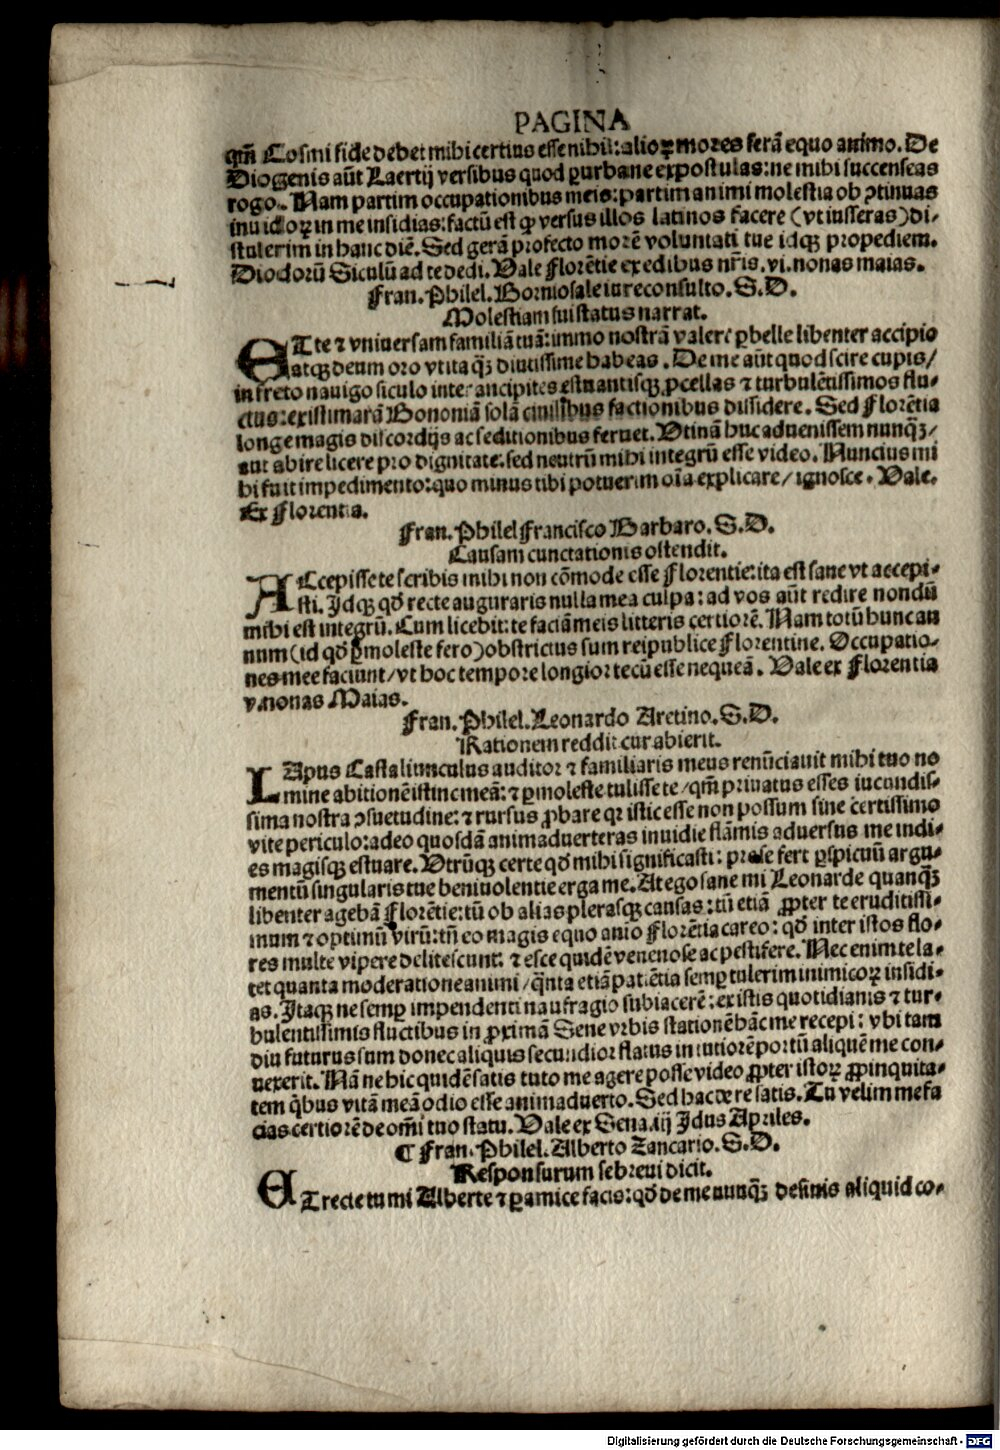 PAGINA
qm̄ Cosmi fide debet mihi certius esse nihil: alioꝝ mores ferā equo animo. De
Diogenis aūt Laertij versibus quod ꝑurbane expostulas: ne mihi succenseas
rogo. Nam partim occupationibus meis: partim animi molestia ob ꝯtinuas
inuidoꝝ in me insidias: factū est ꝙ versus illos latinos facere (vt iusseras) di-
stulerim in hanc diē. Sed gerā profecto morē voluntati tue idqꝫ propediem.
Diodorū Siculū ad te dedi. Vale Florētie ex edibus nr̄is. vi. nonas maias.
Fran. Philel. Bornio sale iureconsulto. S. D.
Molestiam sui status narrat.
ET te ⁊ vniuersam familiā tuā: immo nostrā valere ꝑbelle libenter accipio
atqꝫ deum oro vt ita qꝫ diutissime habeas. De me aūt quod scire cupis/
in freto nauigo siculo inter ancipites estuantisqꝫ ꝓcellas ⁊ turbulētissimos flu-
ctus: existimarā Bononiā solā ciuilibus factionibus dissidere. Sed Florētia
longe magis discordijs ac seditionibus feruet. Vtinā huc aduenissem nunqꝫ/
aut abire licere pro dignitate. sed neutrū mihi integrū esse video. Nuncius mi
hi fuit impedimento: quo minus tibi potuerim oīa explicare/ ignosce. Vale.
Ex Florentia.
Fran. Philel Francisco Barbaro. S. D.
Causam cunctationis ostendit.
ACcepisse te scribis mihi non cōmode esse Florentie: ita est sane vt accepi-
sti. Idqꝫ qd̄ recte auguraris nulla mea culpa: ad vos aūt redire nondū
mihi est integrū. Cum licebit: te faciā meis litteris certiorē. Nam totū hunc an
num (id qd̄ ꝑmoleste fero) obstrictus sum reipublice Florentine. Occupatio-
nes mee faciunt/ vt hoc tempore longior tecū esse nequeā. Vale ex Florentia
v. nonas Maias.
Fran. Philel. Leonardo Aretino. S. D.
Rationem reddit cur abierit.
LApus Castaliunculus auditor ⁊ familiaris meus renūciauit mihi tuo no
mine abitionē istinc meā: ⁊ ꝑmoleste tulisse te/ qm̄ priuatus esses iucundis-
sima nostra ꝯsuetudine: ⁊ rursus ꝓbare qꝛ istic esse non possum sine certissimo
vite periculo: adeo quosdā animaduerteras inuidie flāmis aduersus me indi-
es magisqꝫ estuare. Vtrūqꝫ certe qd̄ mihi significasti: prese fert ꝑspicuū argu-
mentū singularis tue beniuolentie erga me. At ego sane mi Leonarde quanqꝫ
libenter agebā Florētie: tū ob alias plerasqꝫ causas: tū etiā ꝓpter te eruditissi-
mum ⁊ optimū virū: tn̄ eo magis equo anio Florētia careo: qd̄ inter istos flo-
res multe vipere delitescunt: ⁊ esce quidē venenose ac pestifere. Nec enim te la-
tet quanta moderatione animi/ qn̄ta etiā patiētia semꝑ tulerim inimicoꝝ insidi-
as. Itaqꝫ ne semꝑ impendenti naufragio subiacerē: ex istis quotidianis ⁊ tur-
bulentissimis fluctibus in ꝓximā Sene vrbis stationē hāc me recepi: vbi tam
diu futurus sum donec aliquis secundior flatus in tutiorē portū aliquē me con-
uexerit. Nā ne hic quidē satis tuto me agere posse video ꝓpter istoꝝ ꝓpinquita-
tem qͥbus vitā meā odio esse animaduerto. Sed hac de re satis. Tu velim me fa
cias certiorē de om̄i tuo statu. Vale ex Sena. iij Idus Apriles.
¶ Fran. Philel. Alberto Zancario. S. D.
Responsurum se breui dicit.
ET recte tu mi Alberte ⁊ ꝑamice facis: qd̄ de me nunqꝫ desinis aliquid co-
Digitalisierung gefördert durch die Deutsche Forschungsgemeinschaft - DFG